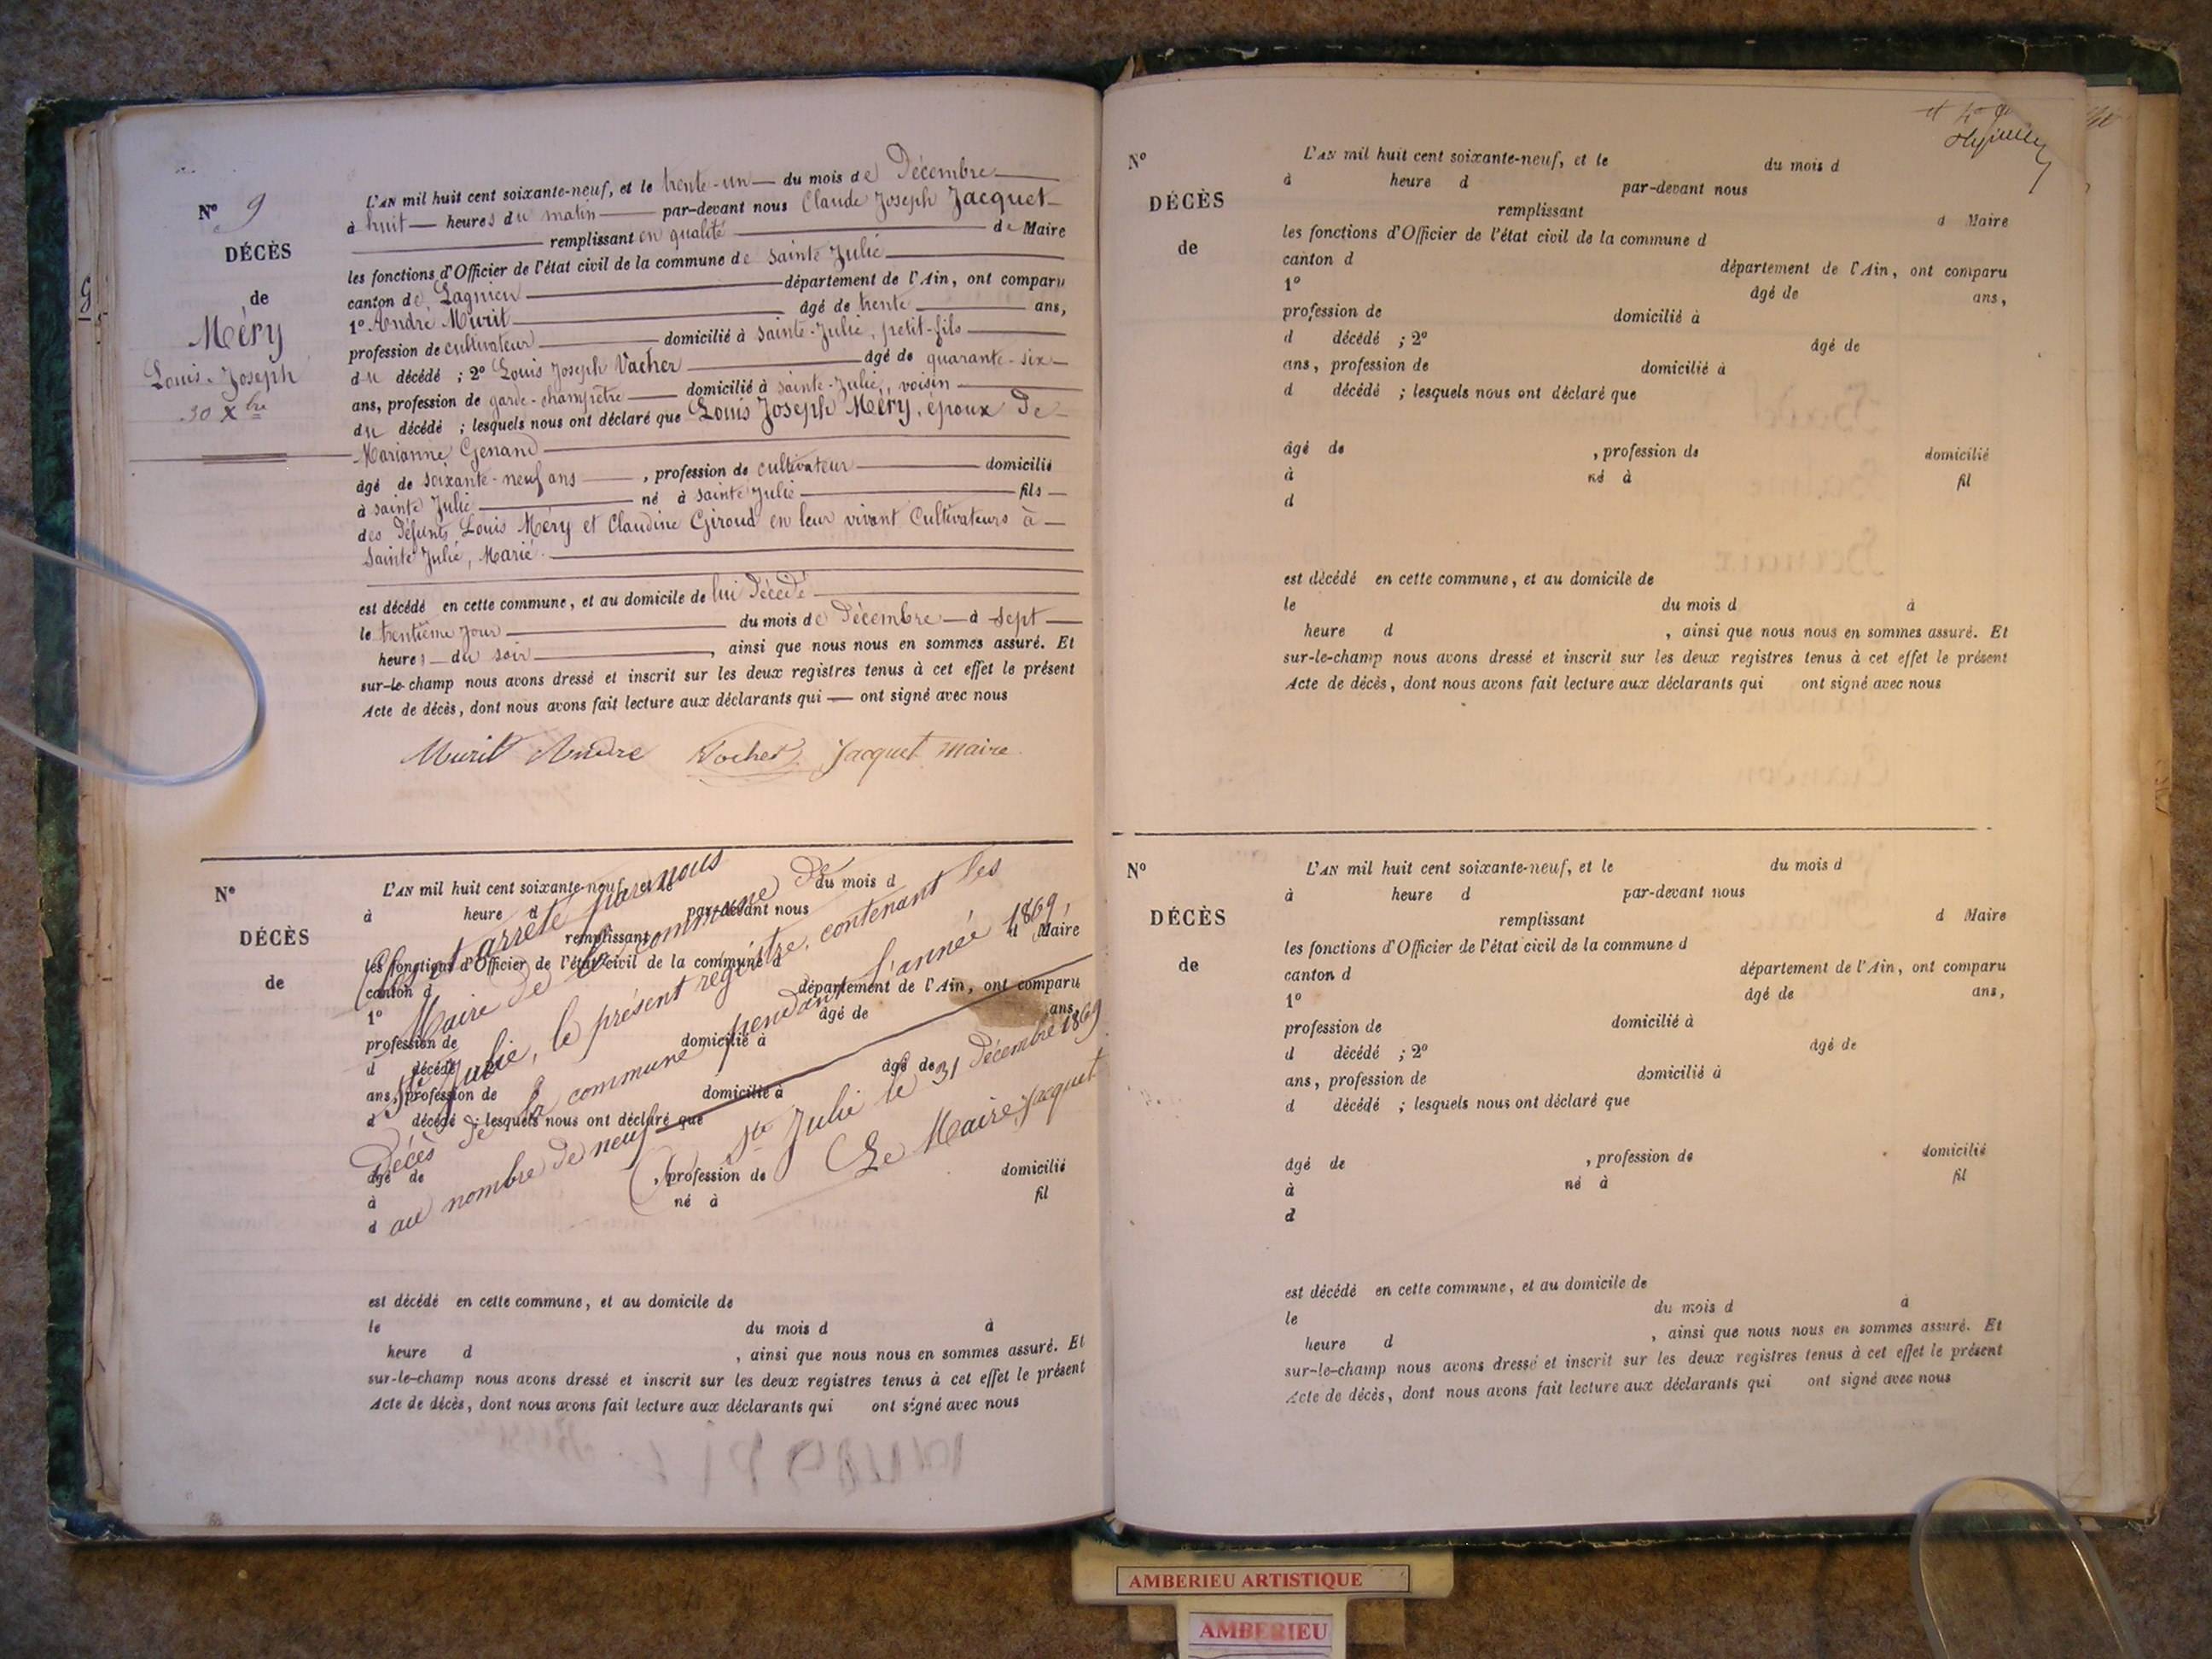 N° 9
DÉCÈS
de
Méry
Louis-Joseph
30 Xbre
L'AN mil huit cent soixante-neuf, et le trente-un du mois de Décembre
à huit heures du matin par-devant nous Claude Joseph Jacquet
remplissant en qualité de Maire
les fonctions d'Officier de l'état civil de la commune de Sainte Julie
canton de Lagnieu département de l'Ain, ont comparu
1° André Murit âgé de trente ans,
profession de cultivateur domicilié à Sainte-Julie, petit-fils
du décédé ; 2° Louis Joseph Vacher âgé de quarante-six
ans, profession de garde-champêtre domicilié à Sainte-Julie, voisin
du décédé ; lesquels nous ont déclaré que Louis Joseph Méry, époux de
Marianne Genand
âgé de soixante-neuf ans , profession de cultivateur domicilié
à Sainte Julie né à Sainte Julie fils
des défunts Louis Méry et Claudine Giroud en leur vivant Cultivateurs à
Sainte Julie, Marié.
est décédé en cette commune, et au domicile de lui Décédé
le trentième jour du mois de Décembre à sept
heures du soir , ainsi que nous nous en sommes assuré. Et
sur-le-champ nous avons dressé et inscrit sur les deux registres tenus à cet effet le présent
Acte de décès, dont nous avons fait lecture aux déclarants qui ont signé avec nous
Murit Andre Vacher Jacquet maire
N°
DÉCÈS
de
L'AN mil huit cent soixante-neuf, et le du mois d
à heure d par-devant nous
remplissant d Maire
les fonctions d'Officier de l'état civil de la commune d
canton d département de l'Ain, ont comparu
1° âgé de ans,
profession de domicilié à
d décédé ; 2° âgé de
ans, profession de domicilié à
d décédé ; lesquels nous ont déclaré que
âgé de , profession de domicilié
à né à fil
d
Clos et arrêté par nous
Maire de la commune de
Ste Julie, le présent registre, contenant les
Décès de la commune pendant l'année 1869,
au nombre de neuf
Ste Julie le 31 Décembre 1869
Le Maire, Jacquet
est décédé en cette commune, et au domicile de
le du mois d à
heure d , ainsi que nous nous en sommes assuré. Et
sur-le-champ nous avons dressé et inscrit sur les deux registres tenus à cet effet le présent
Acte de décès, dont nous avons fait lecture aux déclarants qui ont signé avec nous
N°
DÉCÈS
de
L'AN mil huit cent soixante-neuf, et le du mois d
à heure d par-devant nous
remplissant d Maire
les fonctions d'Officier de l'état civil de la commune d
canton d département de l'Ain, ont comparu
1° âgé de ans,
profession de domicilié à
d décédé ; 2° âgé de
ans, profession de domicilié à
d décédé ; lesquels nous ont déclaré que
âgé de , profession de domicilié
à né à fil
d
est décédé en cette commune, et au domicile de
le du mois d à
heure d , ainsi que nous nous en sommes assuré. Et
sur-le-champ nous avons dressé et inscrit sur les deux registres tenus à cet effet le présent
Acte de décès, dont nous avons fait lecture aux déclarants qui ont signé avec nous
N°
DÉCÈS
de
L'AN mil huit cent soixante-neuf, et le du mois d
à heure d par-devant nous
remplissant d Maire
les fonctions d'Officier de l'état civil de la commune d
canton d département de l'Ain, ont comparu
1° âgé de ans,
profession de domicilié à
d décédé ; 2° âgé de
ans, profession de domicilié à
d décédé ; lesquels nous ont déclaré que
âgé de , profession de domicilié
à né à fil
d
est décédé en cette commune, et au domicile de
le du mois d à
heure d , ainsi que nous nous en sommes assuré. Et
sur-le-champ nous avons dressé et inscrit sur les deux registres tenus à cet effet le présent
Acte de décès, dont nous avons fait lecture aux déclarants qui ont signé avec nous
AMBERIEU ARTISTIQUE
AMBERIEU